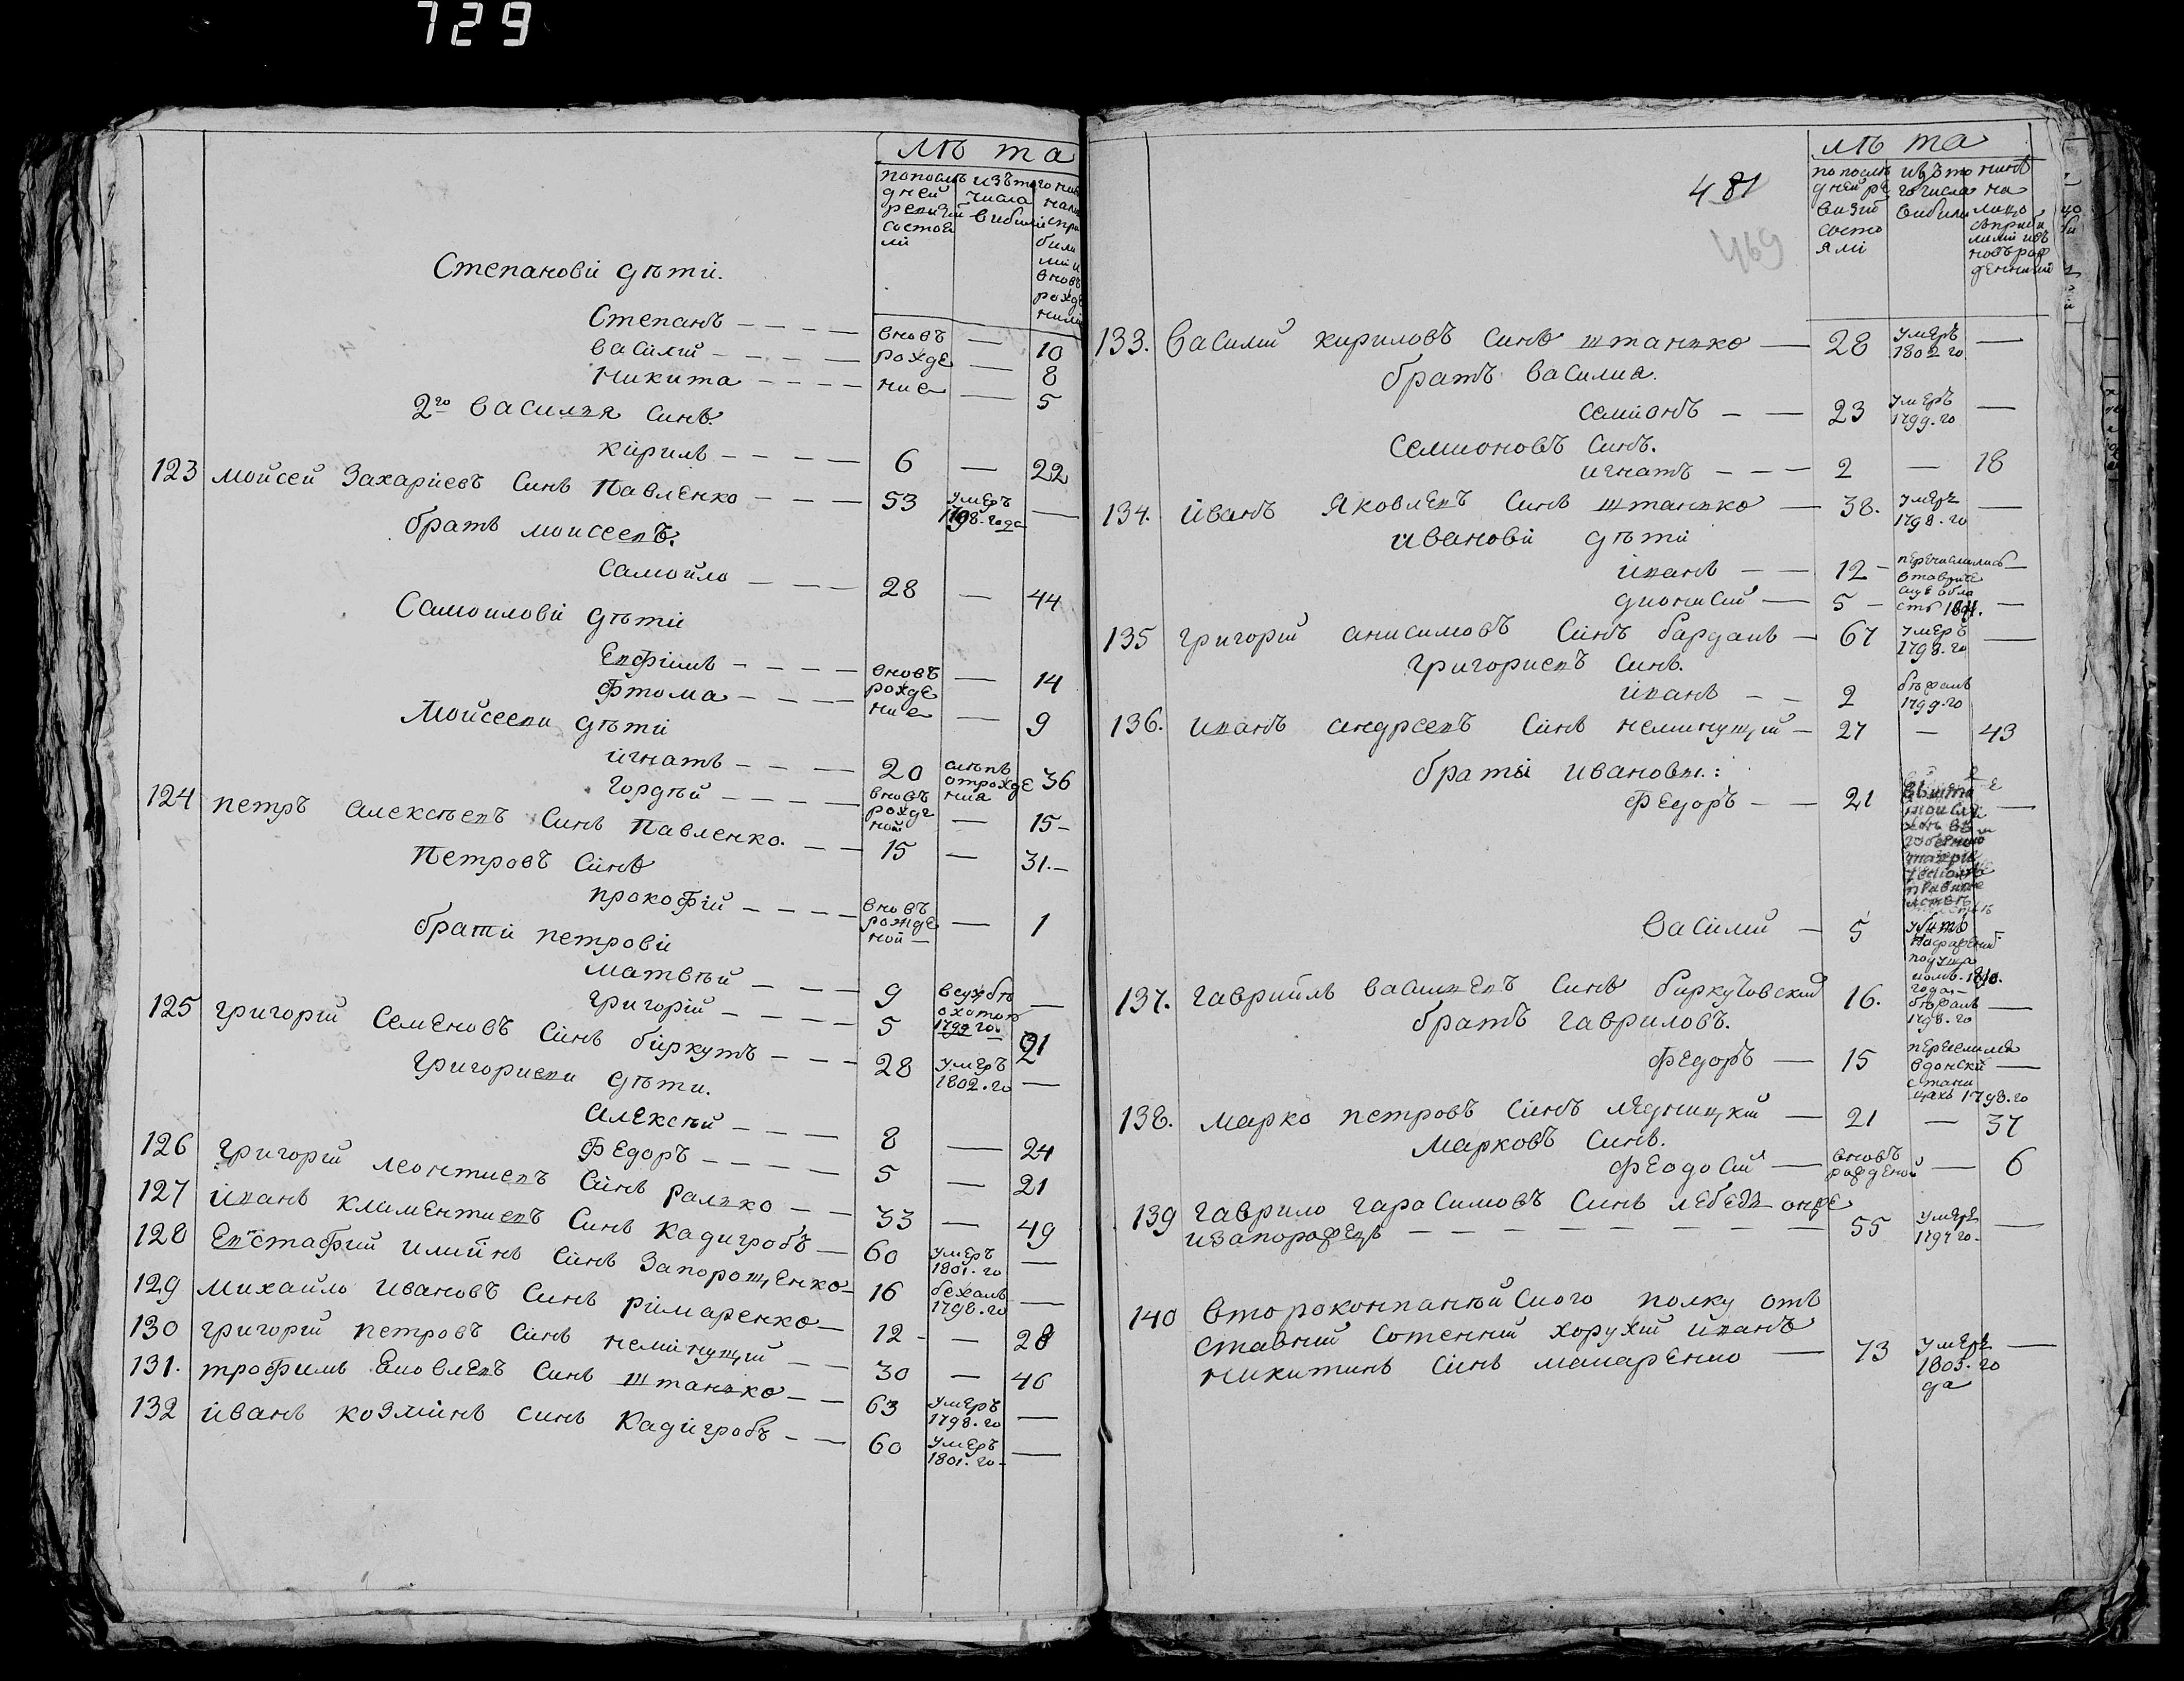 729
лѣта
попослѣ дней ревизіи состоялі
изътого числа вибилі
Степановіи дѣти.
Степанъ – – – – вновъ — 10
василій – – – – рожде — 8
Никита – – – – ние — 5
2го василия синъ.
Кірилъ – – – – 6 — 22
123 мойсей Захариевъ Синъ Павленко – – – 53 умеръ 1798. года —
братъ моисеевъ.
Самойло – – – 28 — 44
Самоиловіи дѣти
Евфимъ – – – – вновъ — 14
Фтома – – – – рожде ние — 9
Мойсееви дѣти
игнатъ – – – – 20 слѣпъ отрожде ния 36
Гордѣй – – – – вновъ рожде ной — 15–
124 петръ алексѣевъ Синъ Павленко. – – 15 — 31.–
Петровъ Синъ
прокофій – – – – вновъ рожде ной — 1
братіи петровіи
матвѣй – – – – 9 —
григорій – – – – 5 1799 го. 21
125 григорій Семеновъ Синъ біркутъ – – – 28 умеръ 1802. го —
григориеви дѣти.
алексѣй – – – 8 — 24
Федоръ – – – – 5 — 21
126 григорій леонтиевъ Синъ ралко – – 33 — 49
127 иванъ климентиевъ Синъ Кадигробъ — 60 умеръ 1801. го —
128 Евстафий илийнъ Синъ Запорощенко – 16 бежалъ 1798. го —
129 Михайло ивановъ Синъ римаренко — 12 – — 28
130 григорій петровъ Синъ неминущій – – 30 — 46
131. трофимъ яковлевъ Синъ штанко – – 63 умеръ 1798. го —
132 иванъ козминъ синъ Кадигробъ – – 60 умеръ 1801. го –
481
469
лѣта
попослѣ дней ре визій состо ялі
изъто го числа вибили
нинѣ на лицо
133. василий кириловъ синъ штанко — 28 умеръ 1802 го —
братъ василия.
семионъ – — 23 умеръ 1799. го —
семионовъ синъ.
игнатъ – – — 2 — 18
134. иванъ Яковлевъ синъ штанко — 38. умеръ 1798. го —
ивановіи дѣти
иванъ – — 12 – перечислилисъ —
дионисий — 5 – —
135 григорій анисимовъ синъ барданъ – 67 умеръ 1798. го —
григориевъ синъ.
иванъ – – 2 бѣжалъ 1799. го
136. иванъ андреевъ синъ неминущий – 27 — 43
братьи ивановы.:
Федоръ – — 21 —
василий – 5
137. гаврийлъ василевъ синъ биркутовский 16. бѣжалъ 1798. го —
братъ гавриловъ.
федоръ — 15 перечислился вдонски стани цахъ 1798. го —
138. марко петровъ синъ ледницкій — 21 — 37
Марковъ синъ.
феодосий — вновъ рожденой — 6
139 гаврило гарасимовъ синъ
изапорожецъ – – – – – – — 55 умеръ 1797 го. —
140 второконпанѣйского полку отъ
ставний сотенний хоружий иванъ
никитинъ синъ — 73 умеръ 1805. го да —